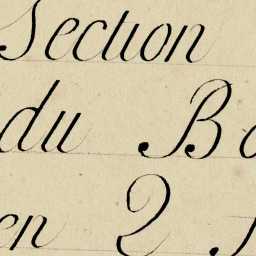 Section
du B
en 2